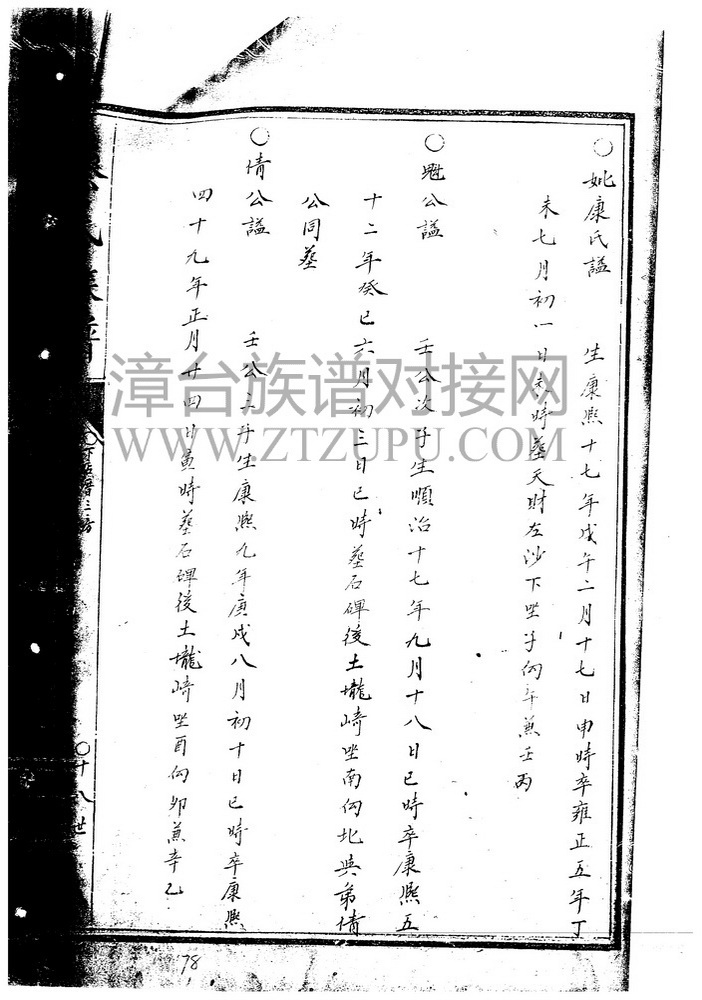 ○妣康氏謚　生康熙十七年戊午二月十七日申時卒雍正五年丁
未七月初一日 時墓天財左沙下坐子向午兼壬丙
○魁公謚　壬公次子生順治十七年九月十八日巳時卒康熙五
十二年癸巳六月初三日巳時墓石碑後土壠崎坐南向北與弟情
公同墓
○情公謚　壬公三子生康熙九年庚戌八月初十日巳時卒康熙
四十九年正月廿四日寅時墓石碑後土壠崎坐酉向卯兼辛乙
氏族譜
○十八世
漳台族谱对接网
WWW.ZTZUPU.COM
78